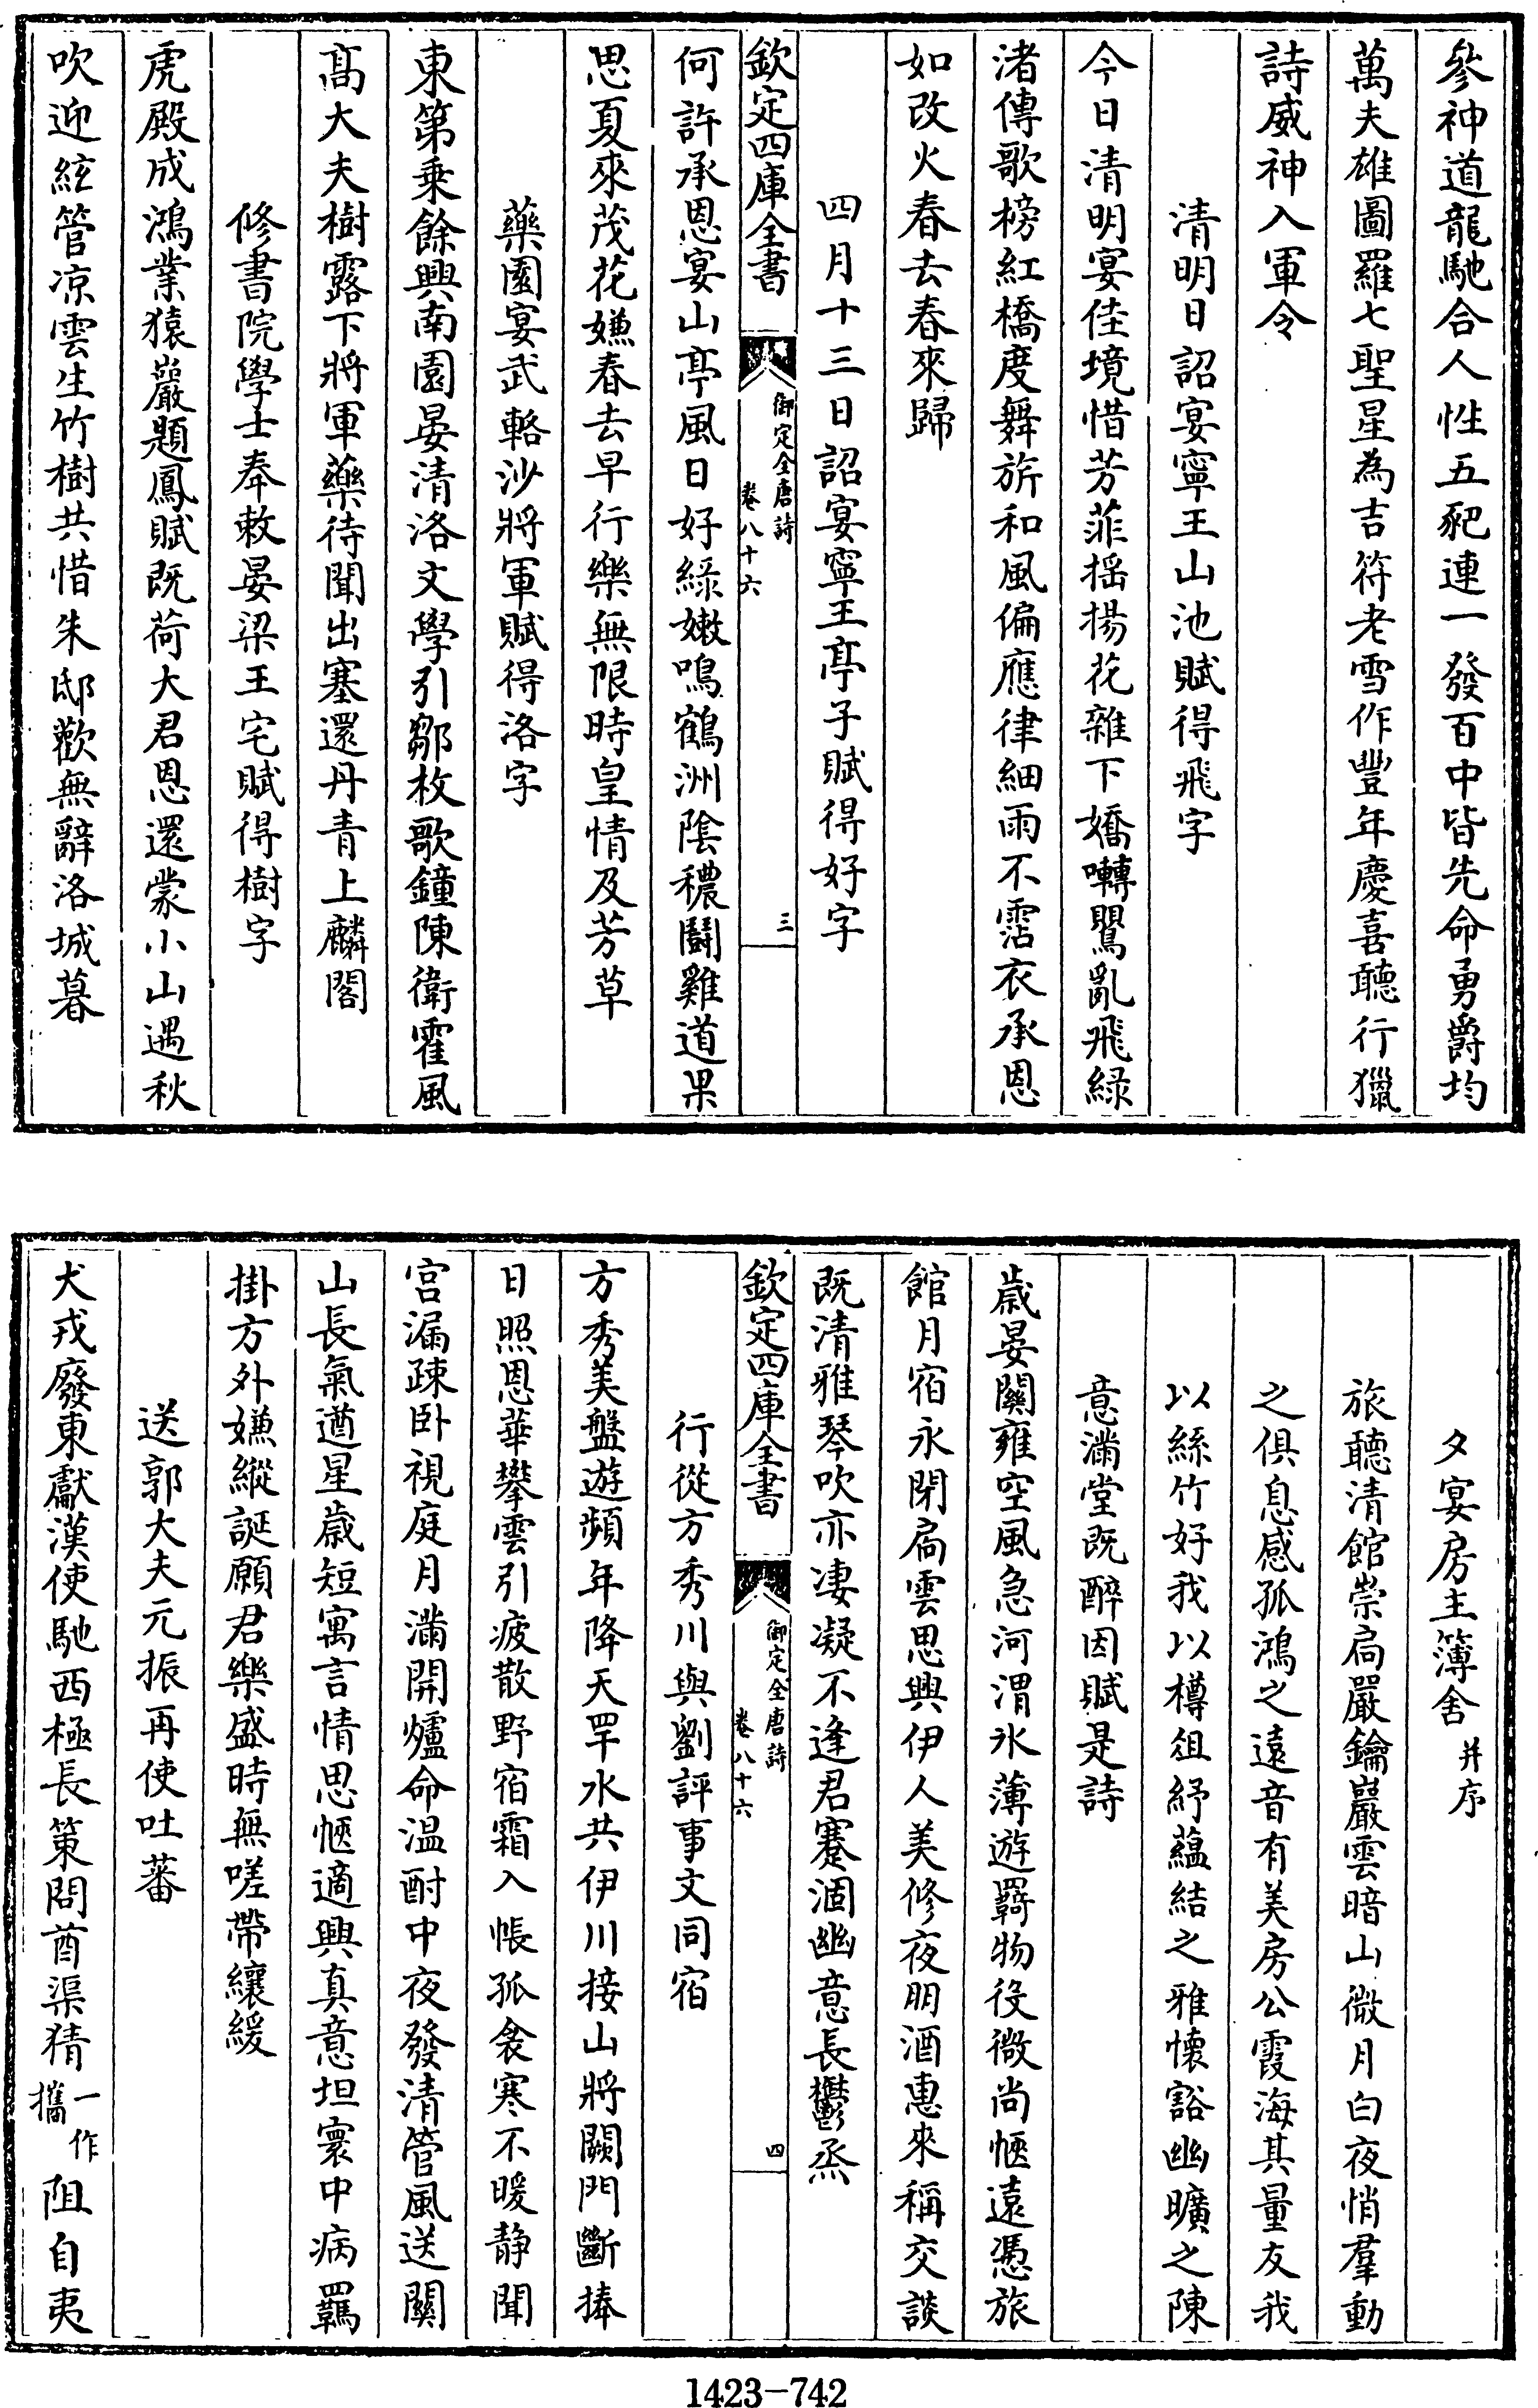 參神道龍馳合人性五豝連一發百中皆先命勇爵均
萬夫雄圖羅七聖星為吉符老雪作豐年慶喜聽行獵
詩威神入軍令
清明日詔宴寧王山池賦得飛字
今日清明宴佳境惜芳菲摇揚花雜下嬌囀鸎亂飛緑
渚傳歌榜紅橋度舞旂和風偏應律細雨不霑衣承恩
如改火春去春來歸
四月十三日詔宴寧王亭子賦得好字
欽定四庫全書
御定全唐詩
卷八十六
三
何許承恩宴山亭風日好綠嫩鳴鶴洲陰穠鬭雞道果
思夏來茂花嫌春去早行樂無限時皇情及芳草
藥園宴武輅沙將軍賦得洛字
東第乗餘興南園晏清洛文學引鄒枚歌鐘陳衛霍風
髙大夫樹露下將軍藥待聞出塞還丹青上麟閣
修書院學士奉敕晏梁王宅賦得樹字
虎殿成鴻業猿巖題鳳賦既荷大君恩還蒙小山遇秋
吹迎絃管凉雲生竹樹共惜朱邸歡無辭洛城暮
夕宴房主簿舍并序
旅聽清館崇扃嚴鑰巖雲暗山微月白夜悄羣動
之俱息感孤鴻之遠音有美房公霞海其量友我
以絲竹好我以樽俎紓藴結之雅懐豁幽曠之陳
意滿堂既醉因賦是詩
歲晏關雍空風急河渭氷薄遊羇物役微尚愜遠憑旅
館月宿永閉扃雲思興伊人美修夜朋酒惠來稱交談
既清雅琴吹亦凄凝不逢君蹇涸幽意長鬱烝
欽定四庫全書
御定全唐詩
卷八十六
四
行從方秀川與劉評事文同宿
方秀美盤遊頻年降天罕水共伊川接山將闕門斷捧
日照恩華攀雲引疲散野宿霜入帳孤衾寒不暖静聞
宫漏疎卧視庭月滿開爐命温酎中夜發清管風送關
山長氣遒星歲短寓言情思愜適興真意坦寰中病羈
掛方外嫌縱誕願君樂盛時無嗟帶纕緩
送郭大夫元振再使吐蕃
犬戎廢東獻漢使馳西極長策問酋渠猜一作攜阻自夷
1423-742